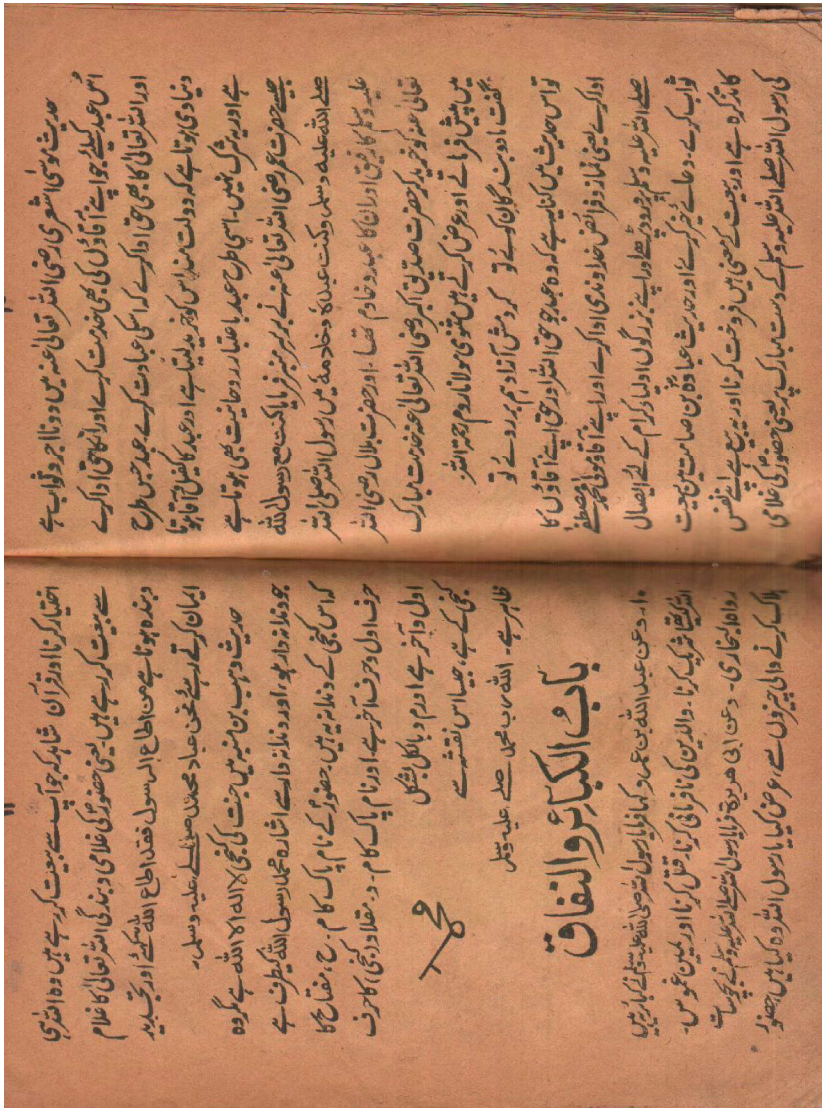 حدیث موسٰی اشعری رضی اللہ تعالیٰ عنہ میں دونا اجر و ثواب ہے
اُس عبد کیلئے جو اپنے آقاؤں کی بھی خدمت کرے اور انکا حق ادا کرے
اور اللہ تعالیٰ کا بھی حق ادا کرے کہ اسکی عبادت کرے عبد جس طرح
دنیادی ہوتا ہے کہ دولت مند اس کو خرید لیتا ہے اور عبد کا کفیل آقا ہوتا
ہے اور یہ شرک نہیں۔ اسی طرح عبد باعتبار روحانیت بھی ہوتا ہے
جیسے حضرت عمر رضی اللہ تعالیٰ عنہ نے برسر منبر فرمایا کنت مع رسول اللہ
صلے اللہ علیہ وسلم وکنت عبدہ وخادمہ میں رسول اللہ صلی اللہ
علیہ وسلم کا رفیق اور ان کا عبد و خادم تھا۔ اور حضرت بلال رضی اللہ
تعالیٰ عنہ کو خرید کر حضرت صدیق اکبر رضی اللہ تعالیٰ عنہ خدمت مبارک
میں پیش فرماتے اور عرض کرتے ہیں مثنوی مولانا روم رحمۃ اللہ
گفت ما دو بندگان کوئے تو کردمش آزاد ہم بر روئے تو
تو اس حدیث میں کنایہ ہے کہ وہ عبد جو حق اللہ اور حق اپنے آقاؤں کا
ادا کرے یعنی نماز و فرائض خداوندی ادا کرے اور اپنے آقا و مولیٰ محمد مصطفٰے
صلے اللہ علیہ وسلم پر درود پڑھے اور اپنے بزرگوں اولیاء کرام کے لئے ایصال
ثواب کرے، دعائے خیر کرے اور حدیث عبادہ بن صامت میں بیعت
کا تذکرہ ہے اور بیعت کے معنی ہیں فروخت کرنا اور یہ بیع ہے اپنے نفس
کی رسول اللہ صلے اللہ علیہ وسلم کے دست مبارک پر یعنی حضور کی غلامی
اختیار کرنا اور قرآن شاہد کہ جو آپ سے بیعت کر رہے ہیں وہ اللہ ہی
سے بیعت کر رہے ہیں۔ یعنی حضور کی غلامی و بندگی اللہ تعالیٰ کا غلام
و بندہ ہونا ہے من اطاع الرسول فقد اطاع اللہ سکئے اور تجدید
ایمان کرتے رہئے نحن عباد محمد صلے علیہ وسلم۔
حدیث وہب بن منبہ میں جنت کی کنجی لا الہ الا اللہ ہے مگر وہ
جو دندانہ دار ہو، اور دندانہ دار سے اشارہ محمد رسول اللہ کیطرف ہے
کہ اس کنجی کے دندانہ یہ ہیں، حضور کے نام پاک کا م۔ ح، مفتاح کا
حرف اول و حرف آخر ہے۔ اور نام پاک کا م۔ د۔ مقلاد رکنجی) کا حرف
اول و آخر ہے اور م د بالکل بشکل
کنجی کے ہے، جیسا اس نقشہ سے
ظاہر ہے۔ اللہ رب محمد صلے علیہ وسلم
محمد
باب الکبائر والنفاق
(۱)۔ وعن عبد اللہ بن عمرو کہا فرمایا رسول اللہ صلی اللہ علیہ وسلم نے کبائر ہیں
اللہ کیساتھ شریک کرنا۔ والدین کی نافرمانی کرنا۔ قتل کرنا اور یمین غموس۔
رواہ البخاری۔ وعن ابی ھریرۃ فرمایا رسول اللہ صلے اللہ علیہ وسلم نے بچو سات
ہلاک کرنے والی چیزوں سے، عرض کیا یا رسول اللہ وہ کیا ہیں، حضور